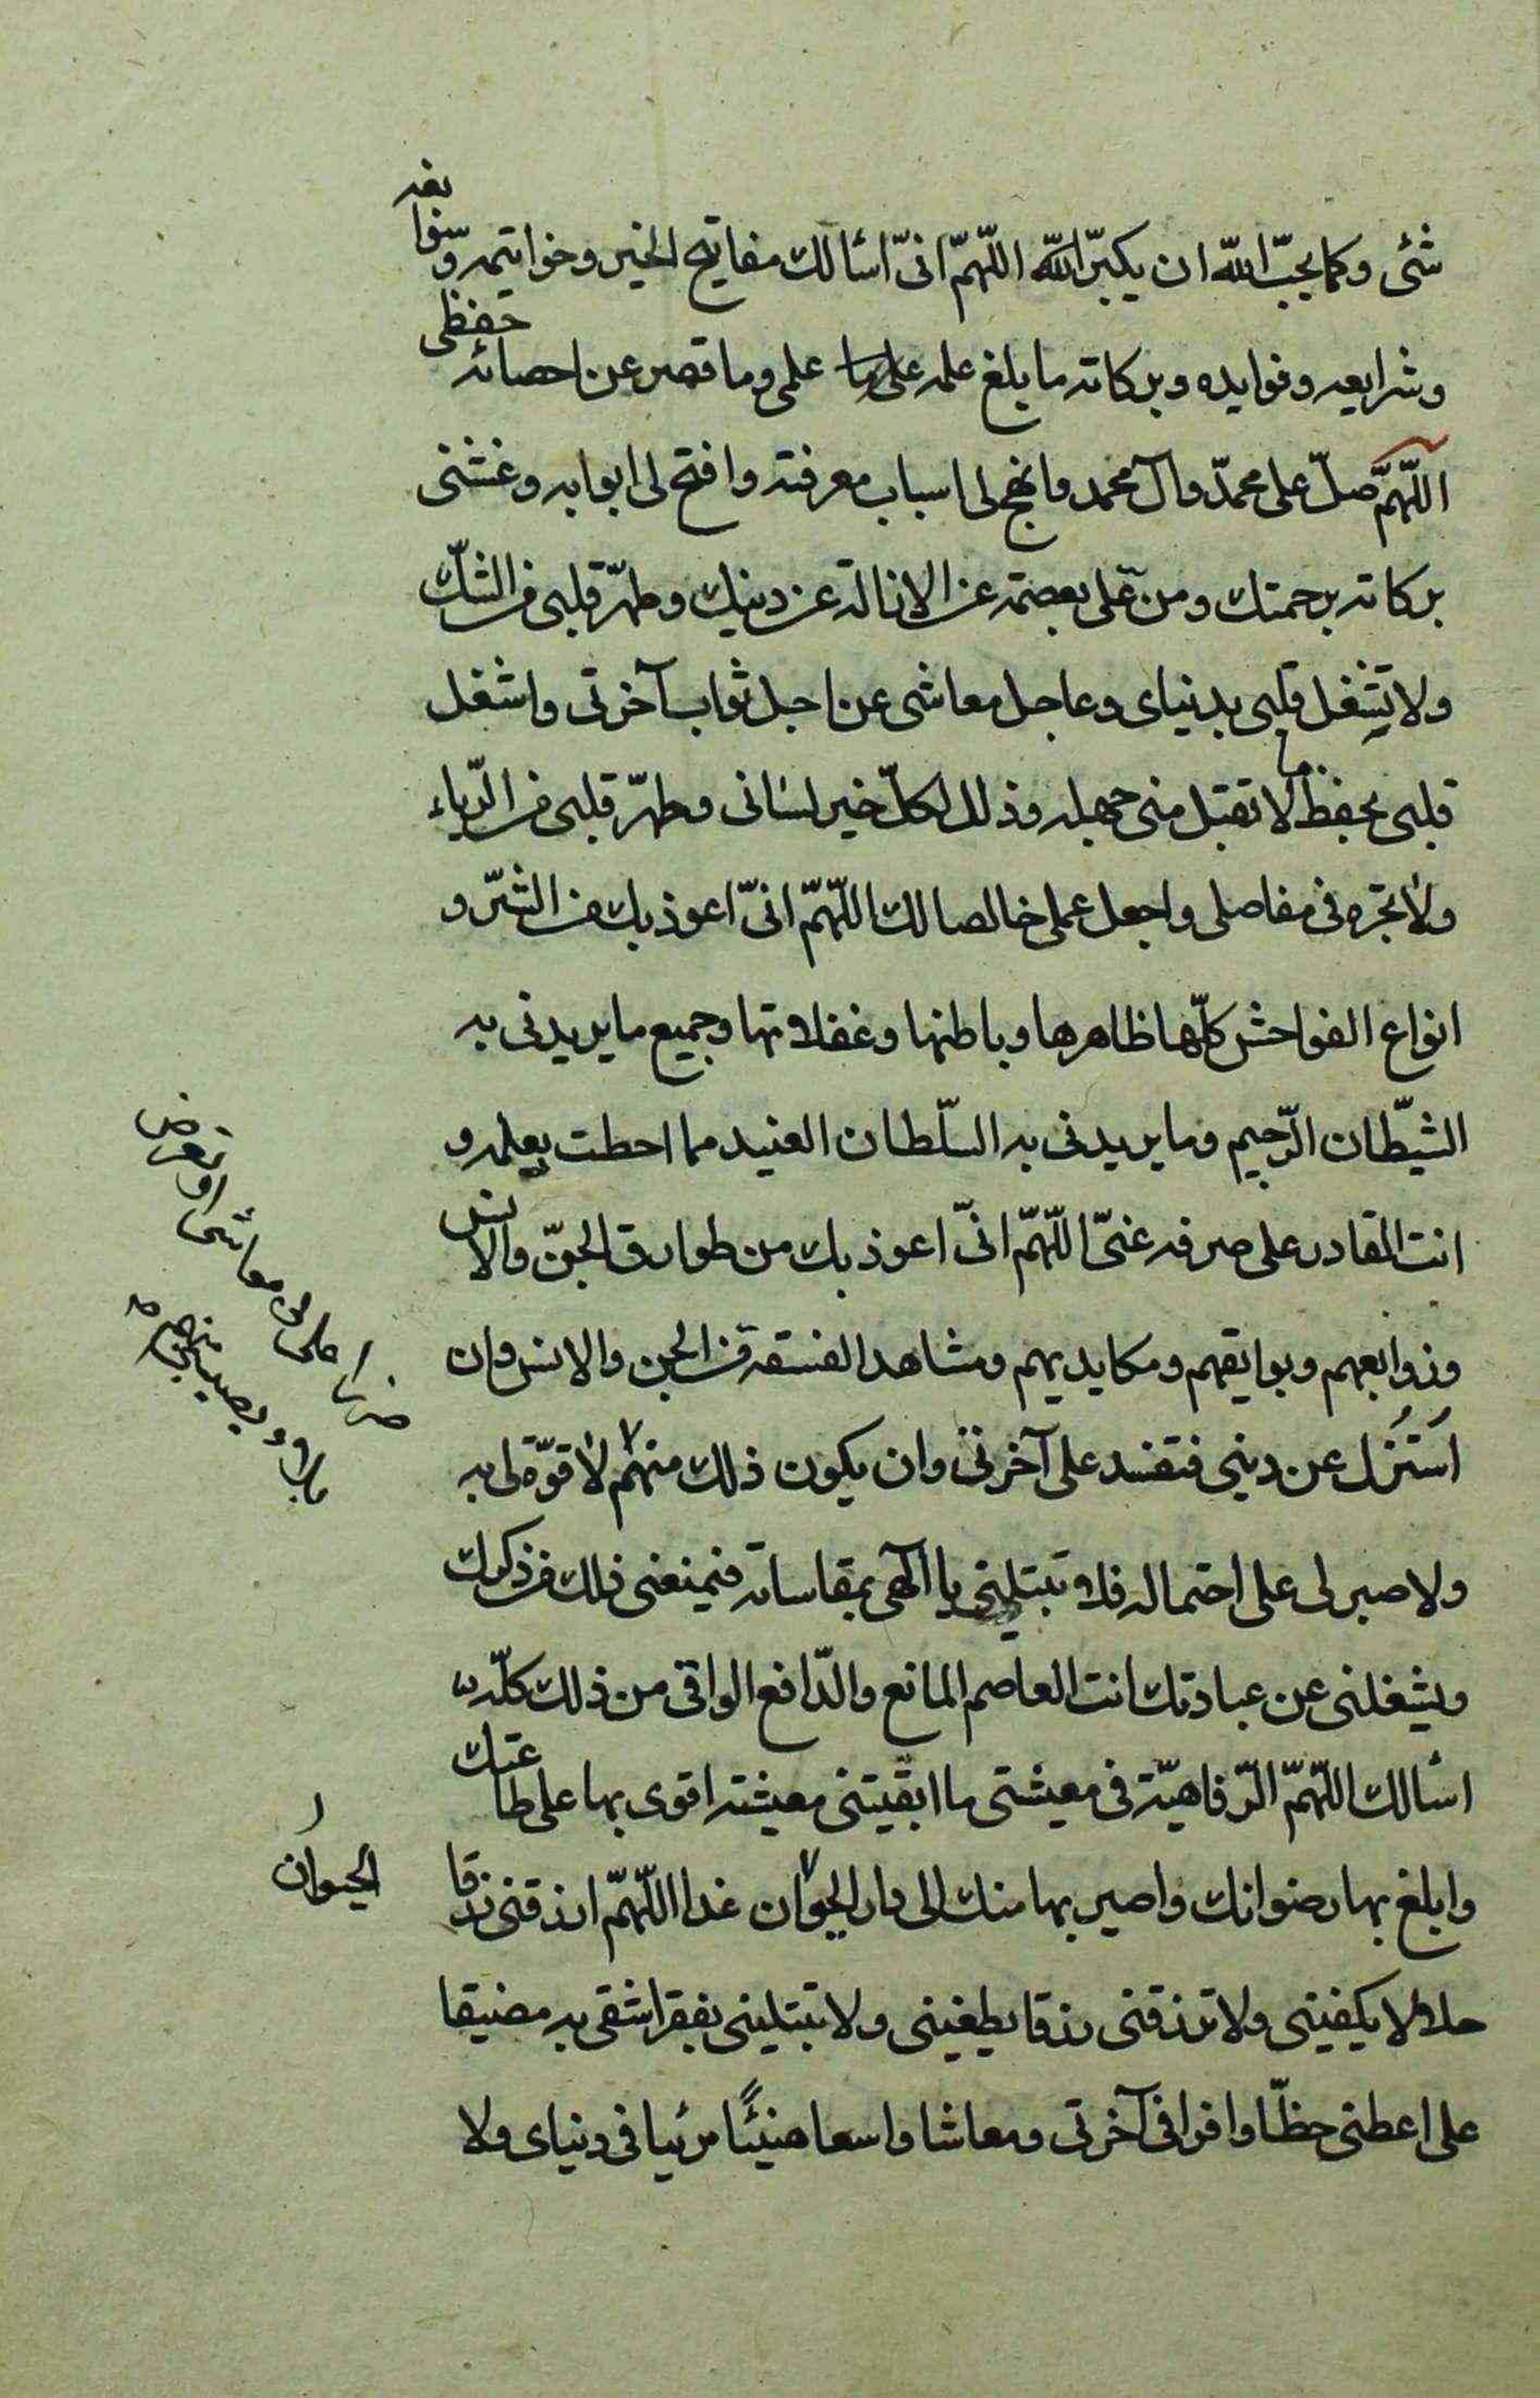 شئ وكما يحبّ الله ان يكبّر الله اللّهمّ انّى اسالك مفاتيح الخير وخواتيمه وسوابغه
وشرايعه وفوايده وبركاته ما بلغ علمه علمى وما قصر عن احصائه حفظى
اللّهمّ صلّ على محمّد وآل محمد وانهج لى اسباب معرفته وافتح لى ابوابه وغشنى
بركاته برحمتك ومن علّى بعصمة عن الازالة عن دينك وطهّر قلبى من الشكّ
ولا تشغل قلبى بدنياى وعاجل معاشى عن اجل ثواب آخرتى واشغل
قلبى بحفظ ما لا تقبل منى جهله وذلل لكلّ خير لسانى وطهّر قلبى من الرّياء
ولا تجره فى مفاصلى واجعل عملى خالصا لك اللّهمّ انّى اعوذ بك من الشّر و
انواع الفواحش كلّها ظاهرها وباطنها وغفلاتها وجميع ما يريدنى به
الشّيطان الرّجيم وما يريدنى به السّلطان العنيد مما احطت بعلمه و
انت القادر على صرفه عنّى اللّهمّ انّى اعوذ بك من طوارق الجنّ والانس
وزوابعهم وبوايقهم ومكايديهم ومشاهد الفسقة من الجن والانس وان
اُستَزُل عن دينى فتفسد على آخرتى وان يكون ذلك منهم لا قوّة لى به
ولا صبر لى على احتماله فلا تبتلينى يا الهى بمقاساته فيمنعنى ذلك من ذكرك
ويشغلنى عن عبادتك انت العاصم المانع والدّافع الواقى من ذلك كلّه
اسالك اللّهمّ الرّفاهيّة فى معيشتى ما ابقيتنى معيشة اقوى بها على طاعتك
وابلغ بها رضوانك واصير بها منك الى دار الحيوان غدا اللّهمّ ارزقنى رزقا
حلالا يكفينى ولا ترزقنى رزقا يطغينى ولا تبتلينى بفقر اشقى به مضيقا
على اعطنى حظّا وافرا فى آخرتى ومعاشا واسعا هنيئًا مرئيا فى دنياى ولا
ضررا على فى معاشى او تعرض
بلاء يصيبنى منهم
الحيوان